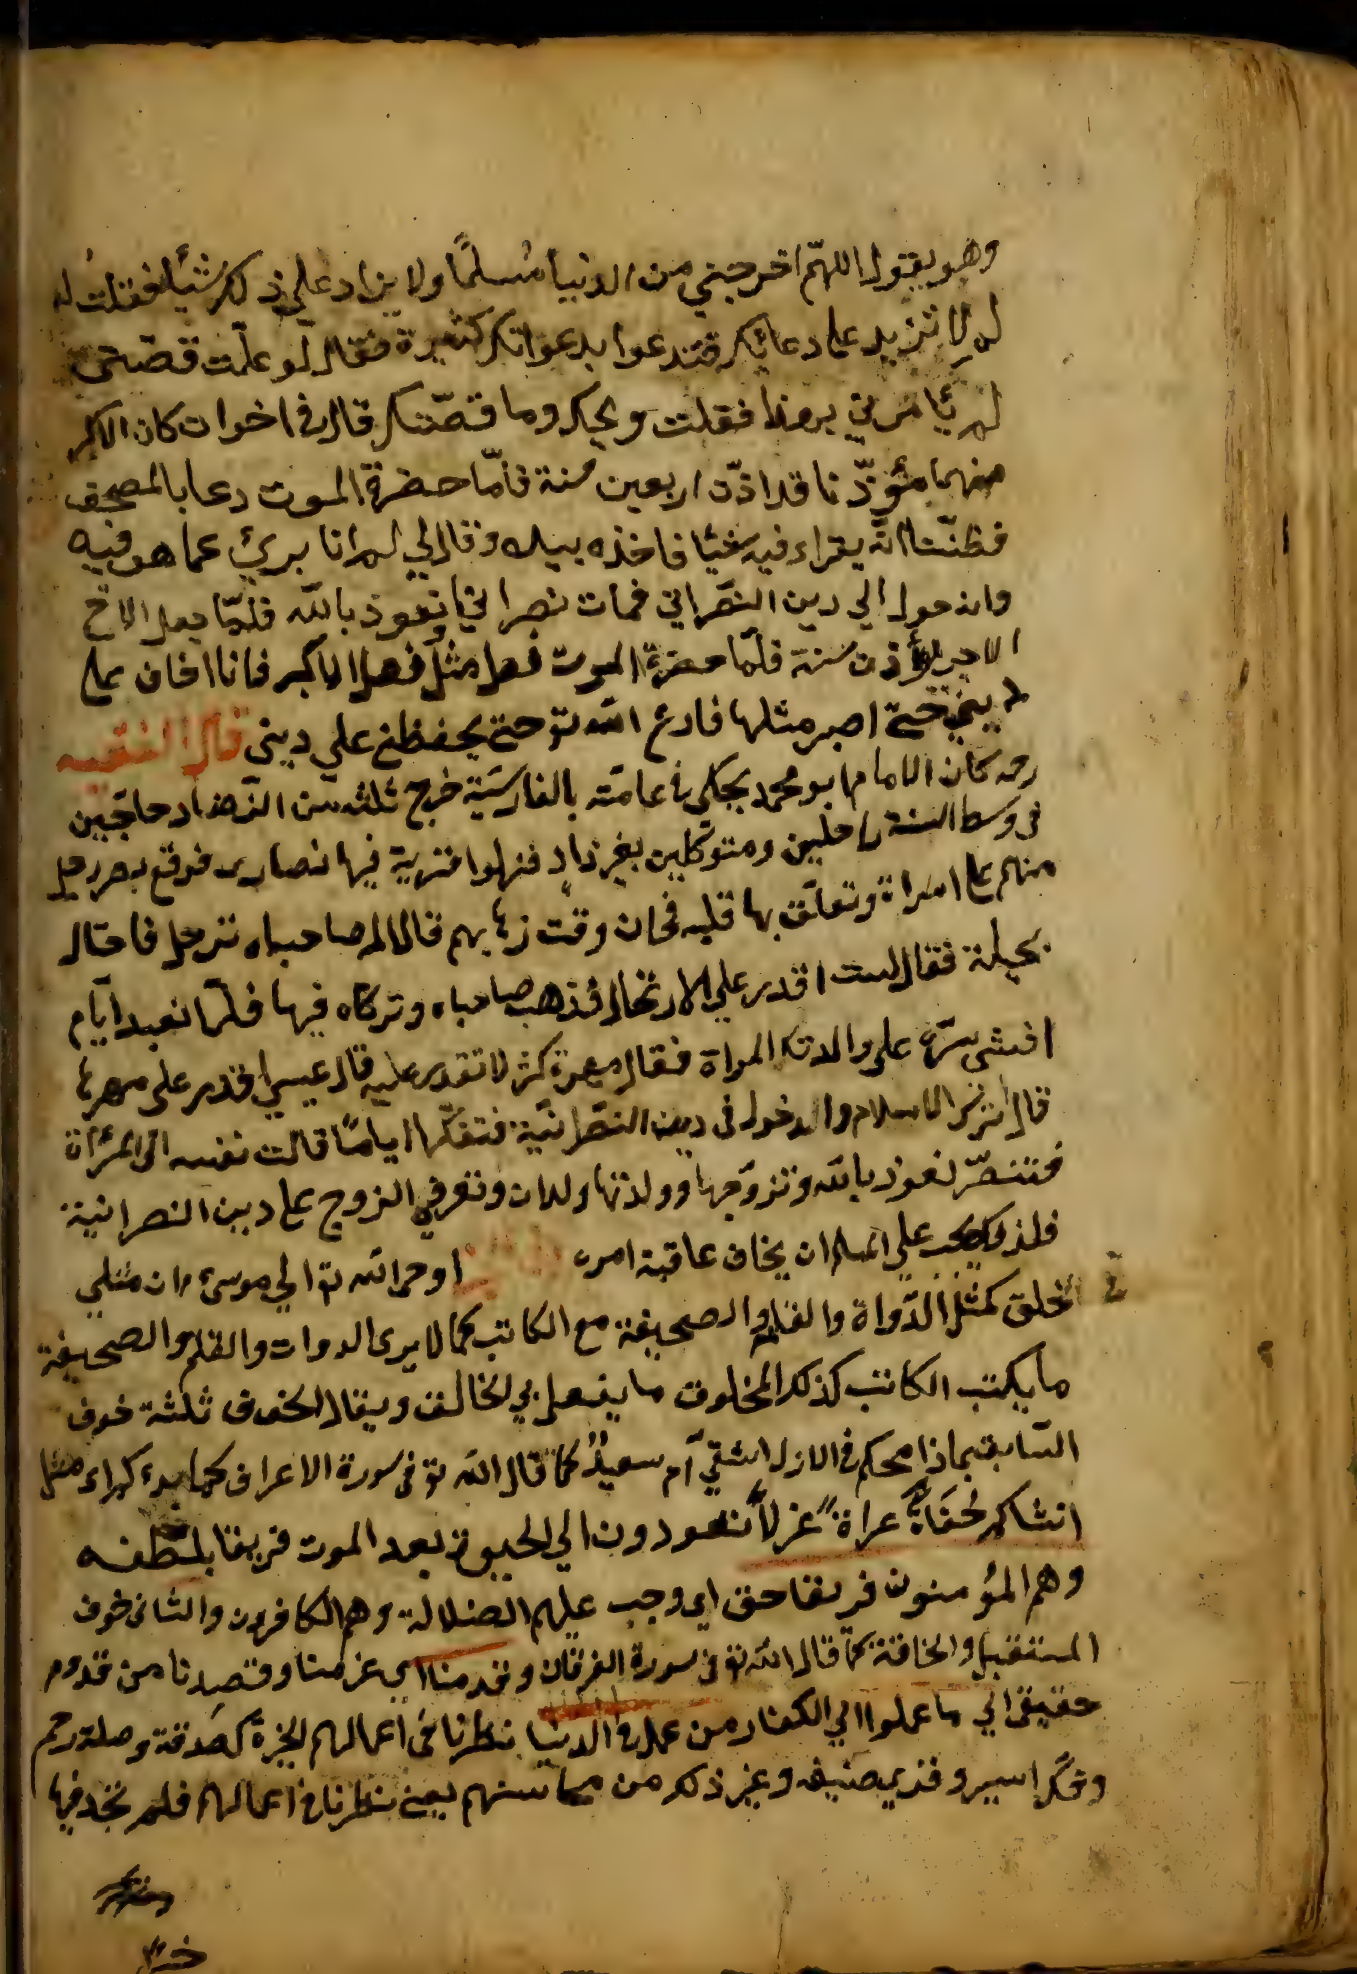 وهو يقول اللهمّ اخرجني من الدنيا مسلمًا ولا يزاد على ذلك شيئًا فقلت له
لم لا تزيد على دعائك فتدعوا بدعواتك كثيرة فقال لو علمت قصّتى
لم تأمرني بهذا فقلت ويحك وما قصّتك قال في اخوان كان الاكبر
منهما مؤذّنا قد اذّن اربعين سنة فلمّا حضرة الموت دعا بالمصحف
فظننّا انّه يقراء فيه شيئا فاخذه بيده وقال لي انا برئ عما هو فيه
وادخول الي دين النصراني فمات نصرانيا نعوذ بالله فلمّا جعل الاخ
الاخر يؤذن سنة فلمّا حضرة الموت فعل مثل فعل الاكبر فانا اخاف على
ديني حتى اصبر مثلها فادع الله تع حتى يحفظني على ديني قال الفقيه
رحه كان الامام ابو محمد يحكي في عامته بالفارسية خرج ثلثه من الزهاد حاجّين
في وسط السنة راحلين ومتوكلين بغير زاد فنزلوا قرية فيها نصارى فوقع بصر رجل
منهم على امراة وتعلق بها قلبه فحان وقت ذهابهم قال له صاحباه نرحل فاحتال
بحيلة فقال لست اقدر على الارتحال فذهب صاحباه وتركاه فيها فلمّا بعد ايّام
افشى سرّه على والد المراة فقال مهرة كثر لا تقدر عليه قال عيسى اقدر على مهرها
قال اترك الاسلام والدخول في دين النصرانيّة فتفكّر ايامًا قالت نفسه الى المرأة
فتنصّر نعوذ بالله وتزوّجها وولدتها ولدان وتعرفي الزوج على دين النصرانية
فلذلك يجب على المسلم ان يخاف عاقبة امره اوحى الله تع الي موسى ان مثلي
لخلق كمثل الدّواة والقلم والصحيفة مع الكاتب كما لا يرى الدوات والقلم والصحيفة
ما يكتب الكاتب كذلك المخلوق ما يفعل بي الخالق ويقال الخوف ثلثة خوف
السّابق بماذا محكم في الازل اشقيّ ام سعيدٌ كما قال الله تع في سورة الاعراف كما بدءكم اي مثل
انشاكم حفاةً عراةً غزلاً تعودون الي الحيوة بعد الموت فريقا بلطفه
وهم المؤمنون فريقا حق اي وجب عليهم الضلالة وهم الكافرون والثانى خوف
المستقبل والخافة كما قال الله تع في سورة الفرقان وقدمنا اي عزمنا وقصدنا من قدوم
حقيقي الي ما عملوا الي الكفار من عمل في الدنيا نظرنا فى اعمالهم الخيرة كصدقة وصلة رحم
وفكّ اسير وقري ضيف وغير ذلك من محاسنهم يعني نظرنا في اعمالهم فلم نجد فيها